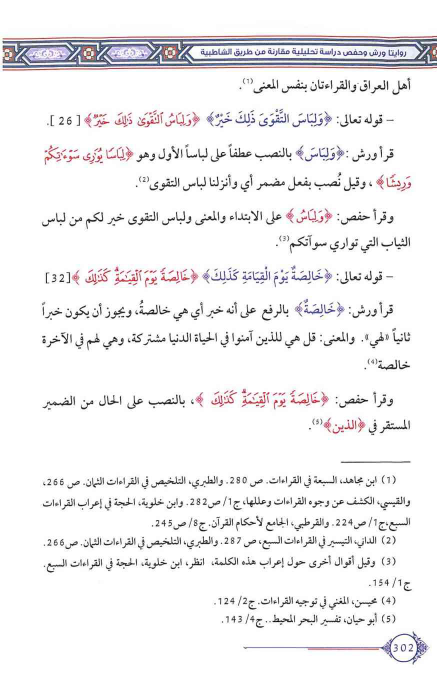 روايتا ورش وحفص دراسة تحليلية مقارنة من طريق الشاطبية
أهل العراق والقراءتان بنفس المعنى(1).
– قوله تعالى: ﴿وَلِبَاسَ التَّقْوَىٰ ذَلِكَ خَيْرٌ﴾ ﴿وَلِبَاسُ ٱلتَّقْوَىٰ ذَٰلِكَ خَيْرٌ﴾ [26].
قرأ ورش: ﴿وَلِبَاسَ﴾ بالنصب عطفاً على لباساً الأول وهو ﴿لِبَاسًا يُوَٰرِي سَوْءَٰتِكُمْ
وَرِيشًا﴾، وقيل نُصب بفعل مضمر أي وأنزلنا لباس التقوى(2).
وقرأ حفص: ﴿وَلِبَاسُ﴾ على الابتداء والمعنى ولباس التقوى خير لكم من لباس
الثياب التي تواري سوآتكم(3).
– قوله تعالى: ﴿خَالِصَةٌ يَوْمَ الْقِيَامَةِ كَذَلِكَ﴾ ﴿خَالِصَةً يَوْمَ ٱلْقِيَٰمَةِۗ كَذَٰلِكَ﴾ [32]
قرأ ورش: ﴿خَالِصَةٌ﴾ بالرفع على أنه خبر أي هي خالصةُ، ويجوز أن يكون خبراً
ثانياً «لهي». والمعنى: قل هي للذين آمنوا في الحياة الدنيا مشتركة، وهي لهم في الآخرة
خالصة(4).
وقرأ حفص: ﴿خَالِصَةً يَوْمَ ٱلْقِيَٰمَةِۗ كَذَٰلِكَ﴾، بالنصب على الحال من الضمير
المستقر في ﴿الذين﴾(5).
(1) ابن مجاهد، السبعة في القراءات. ص 280. والطبري، التلخيص في القراءات الثمان. ص 266،
والقيسي، الكشف عن وجوه القراءات وعللها، ج1/ ص282. وابن خلوية، الحجة في إعراب القراءات
السبع، ج1/ ص224. والقرطبي، الجامع لأحكام القرآن. ج8/ ص245.
(2) الداني، التيسير في القراءات السبع، ص 287. والطبري، التلخيص في القراءات الثمان. ص266.
(3) وقيل أقوال أخرى حول إعراب هذه الكلمة، انظر، ابن خلوية، الحجة في القراءات السبع.
ج1/ 154.
(4) محيسن، المغني في توجيه القراءات. ج2/ 124.
(5) أبو حيان، تفسير البحر المحيط.. ج4/ 143.
302